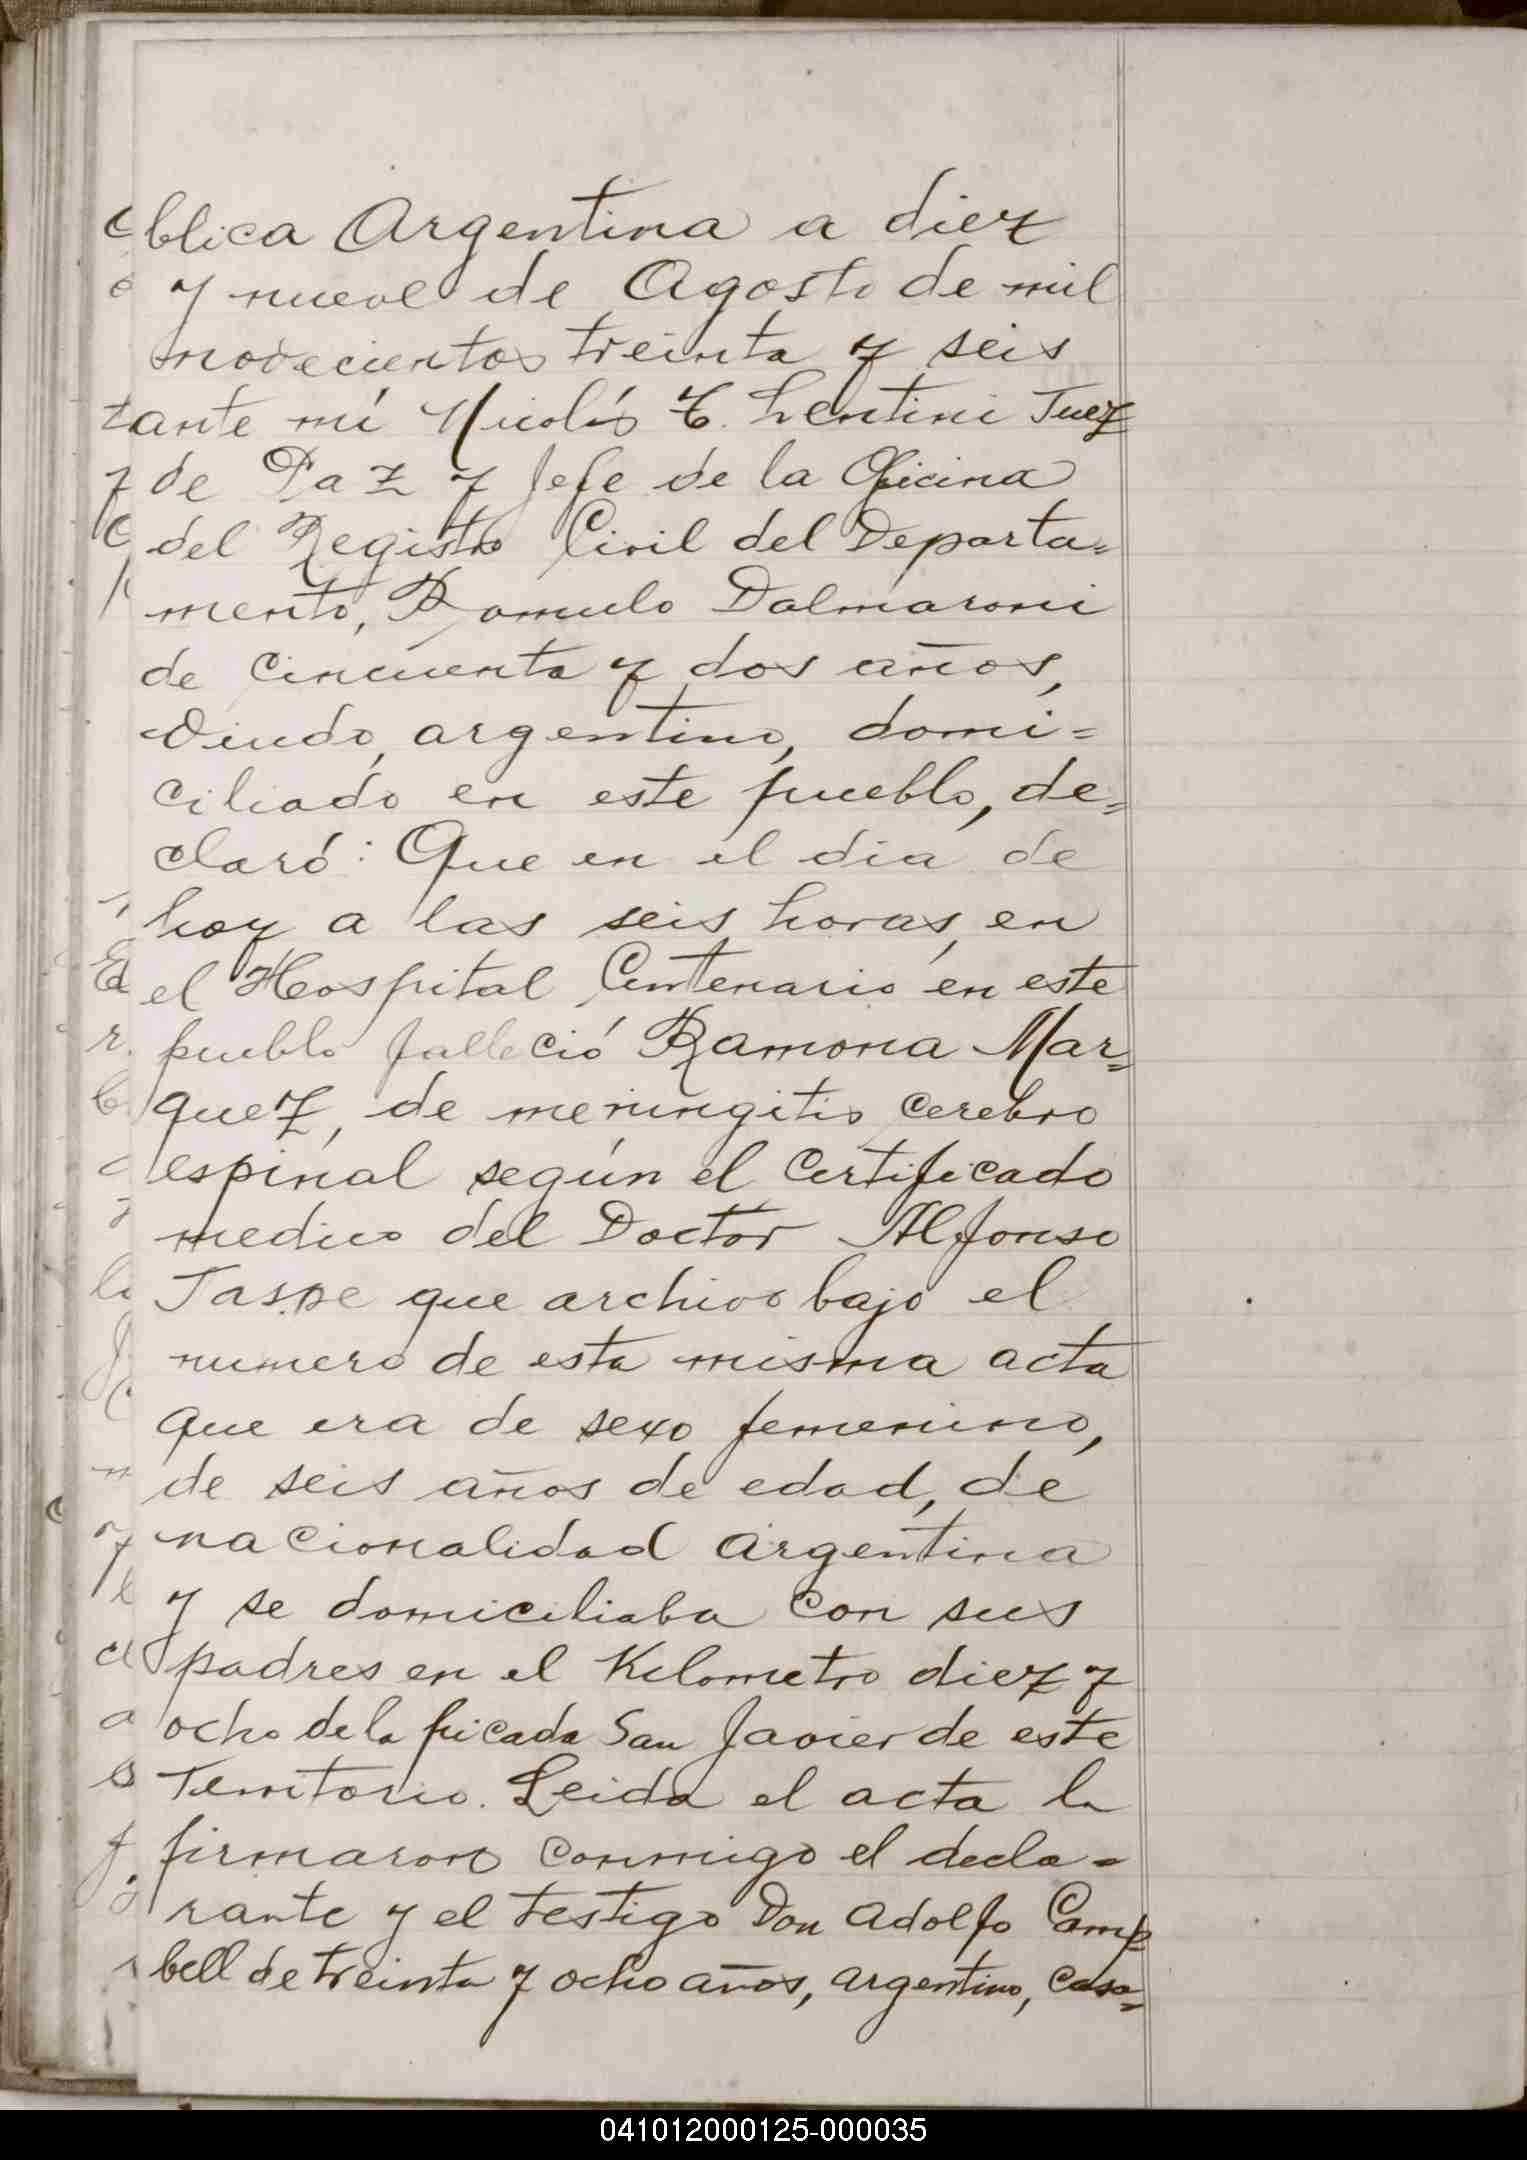 blica Argentina a diez
y nueve de Agosto de mil
novecientos treinta y seis
ante mí Nicolás C. Lentini Juez
de Paz y Jefe de la Oficina
del Registro Civil del Departa=
mento, Romulo Dalmaroni
de cincuenta y dos años,
viudo, argentino, domi=
ciliado en este pueblo, de=
claró: Que en el dia de
hoy a las seis horas, en
el Hospital Centenario en este
pueblo falleció Ramona Mar=
quez, de meningitis cerebro
espinal según el certificado
medico del Doctor Alfonso
Jaspe que archivo bajo el
numero de esta misma acta
que era de sexo femenino,
de seis años de edad, de
nacionalidad argentina
y se domiciliaba con sus
padres en el Kilometro diez y
ocho de la picada San Javier de este
Territorio. Leida el acta la
firmaron conmigo el decla=
rante y el testigo Don Adolfo Camp=
bell de treinta y ocho años, argentino, casa=
041012000125-000035